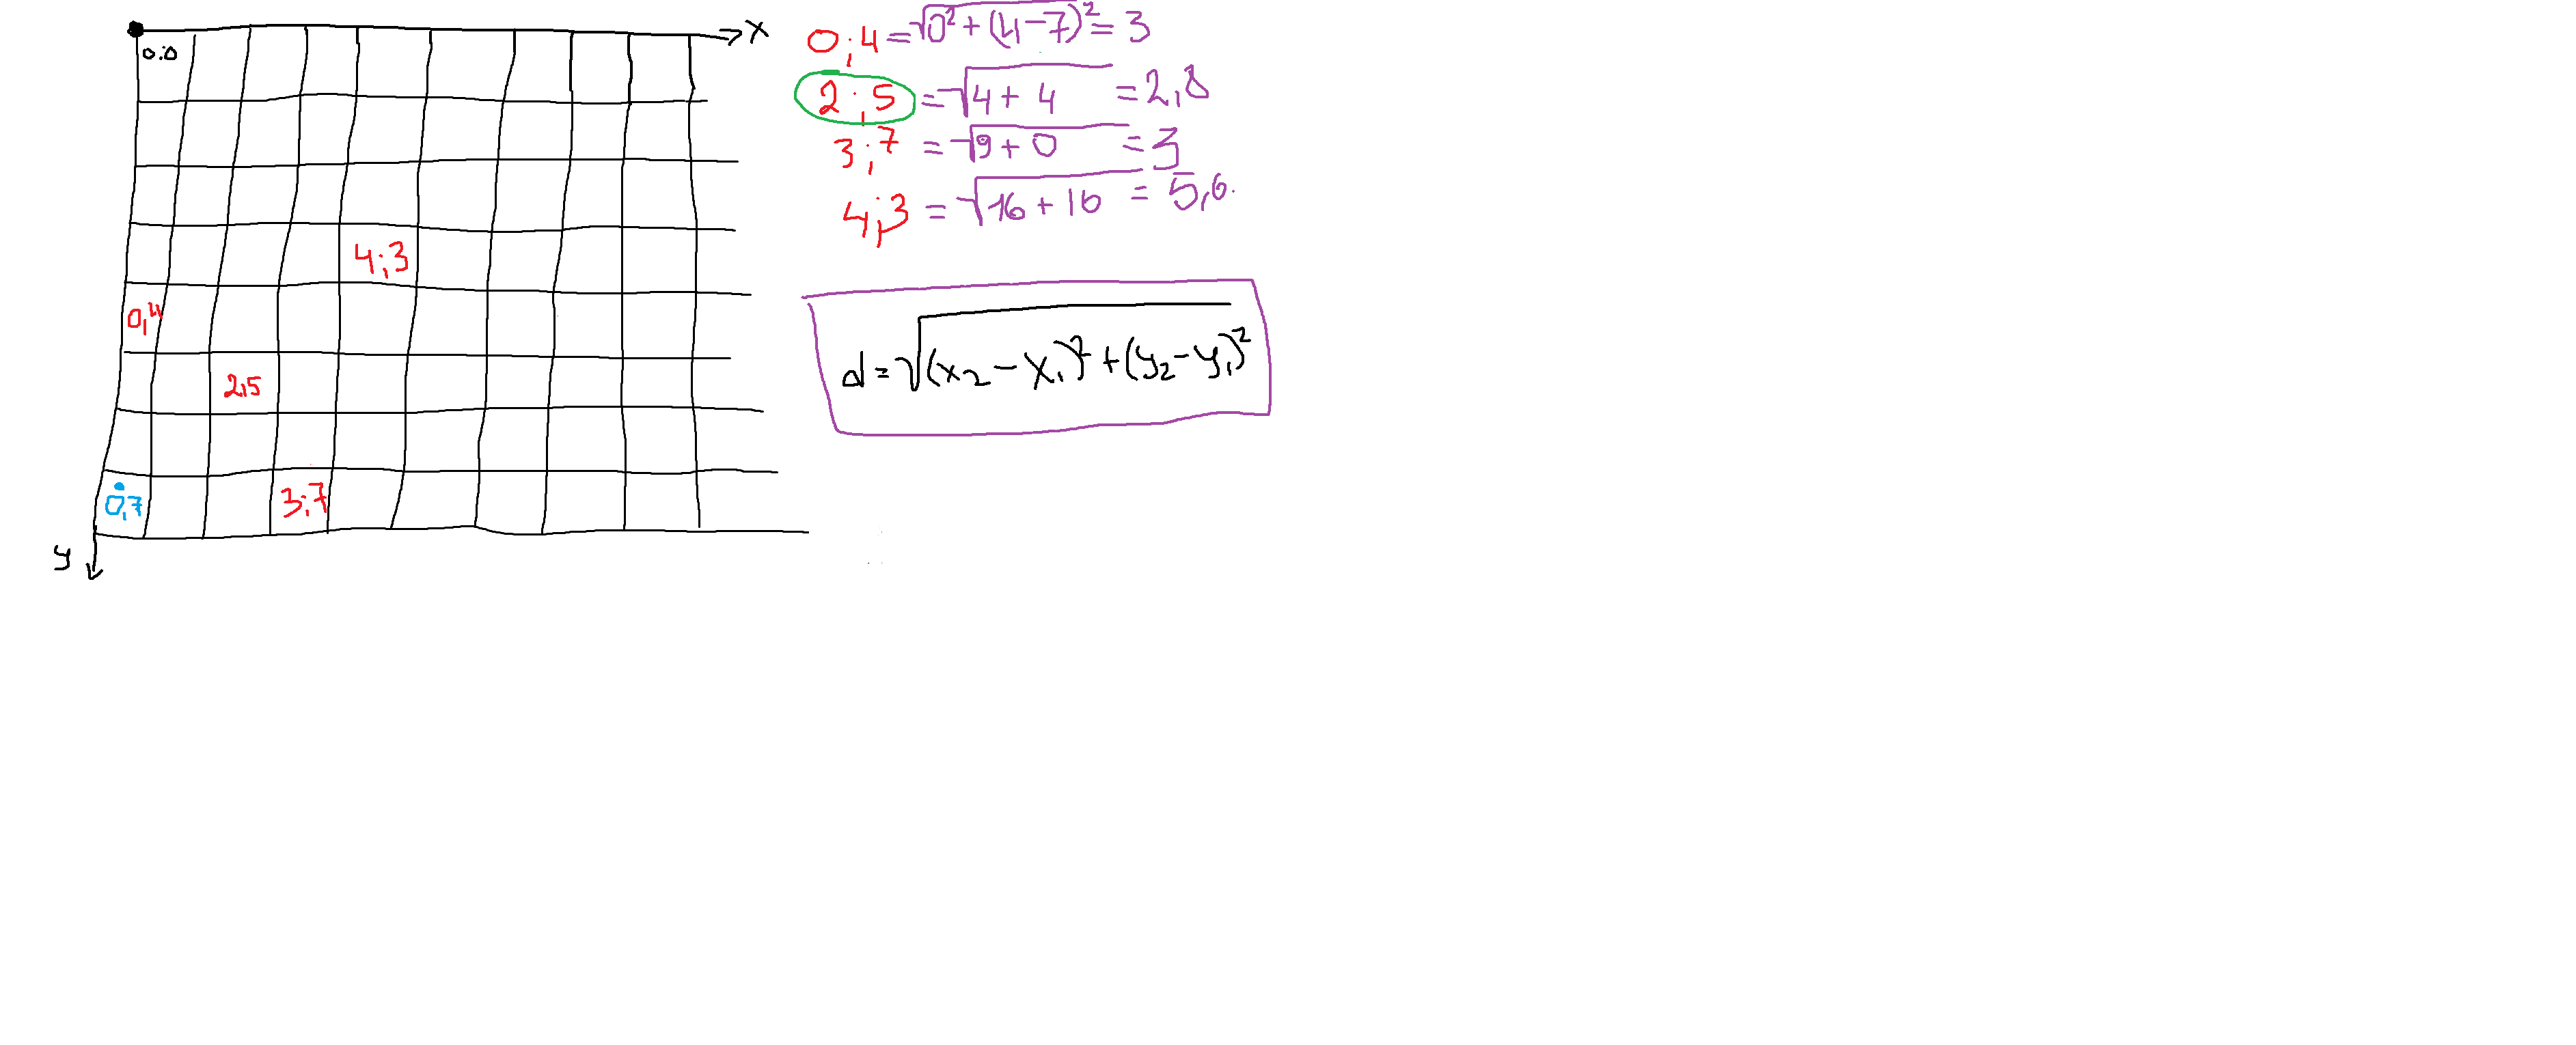 x
0:0
4;3
0,4
2,5
0,7
3;7
y
0;4 = √0² + (4-7)² = 3
2;5 = √4 + 4 = 2,8
3;7 = √9 + 0 = 3
4;3 = √16 + 16 = 5,6.
d = √(x₂ - x₁)² + (y₂ - y₁)²